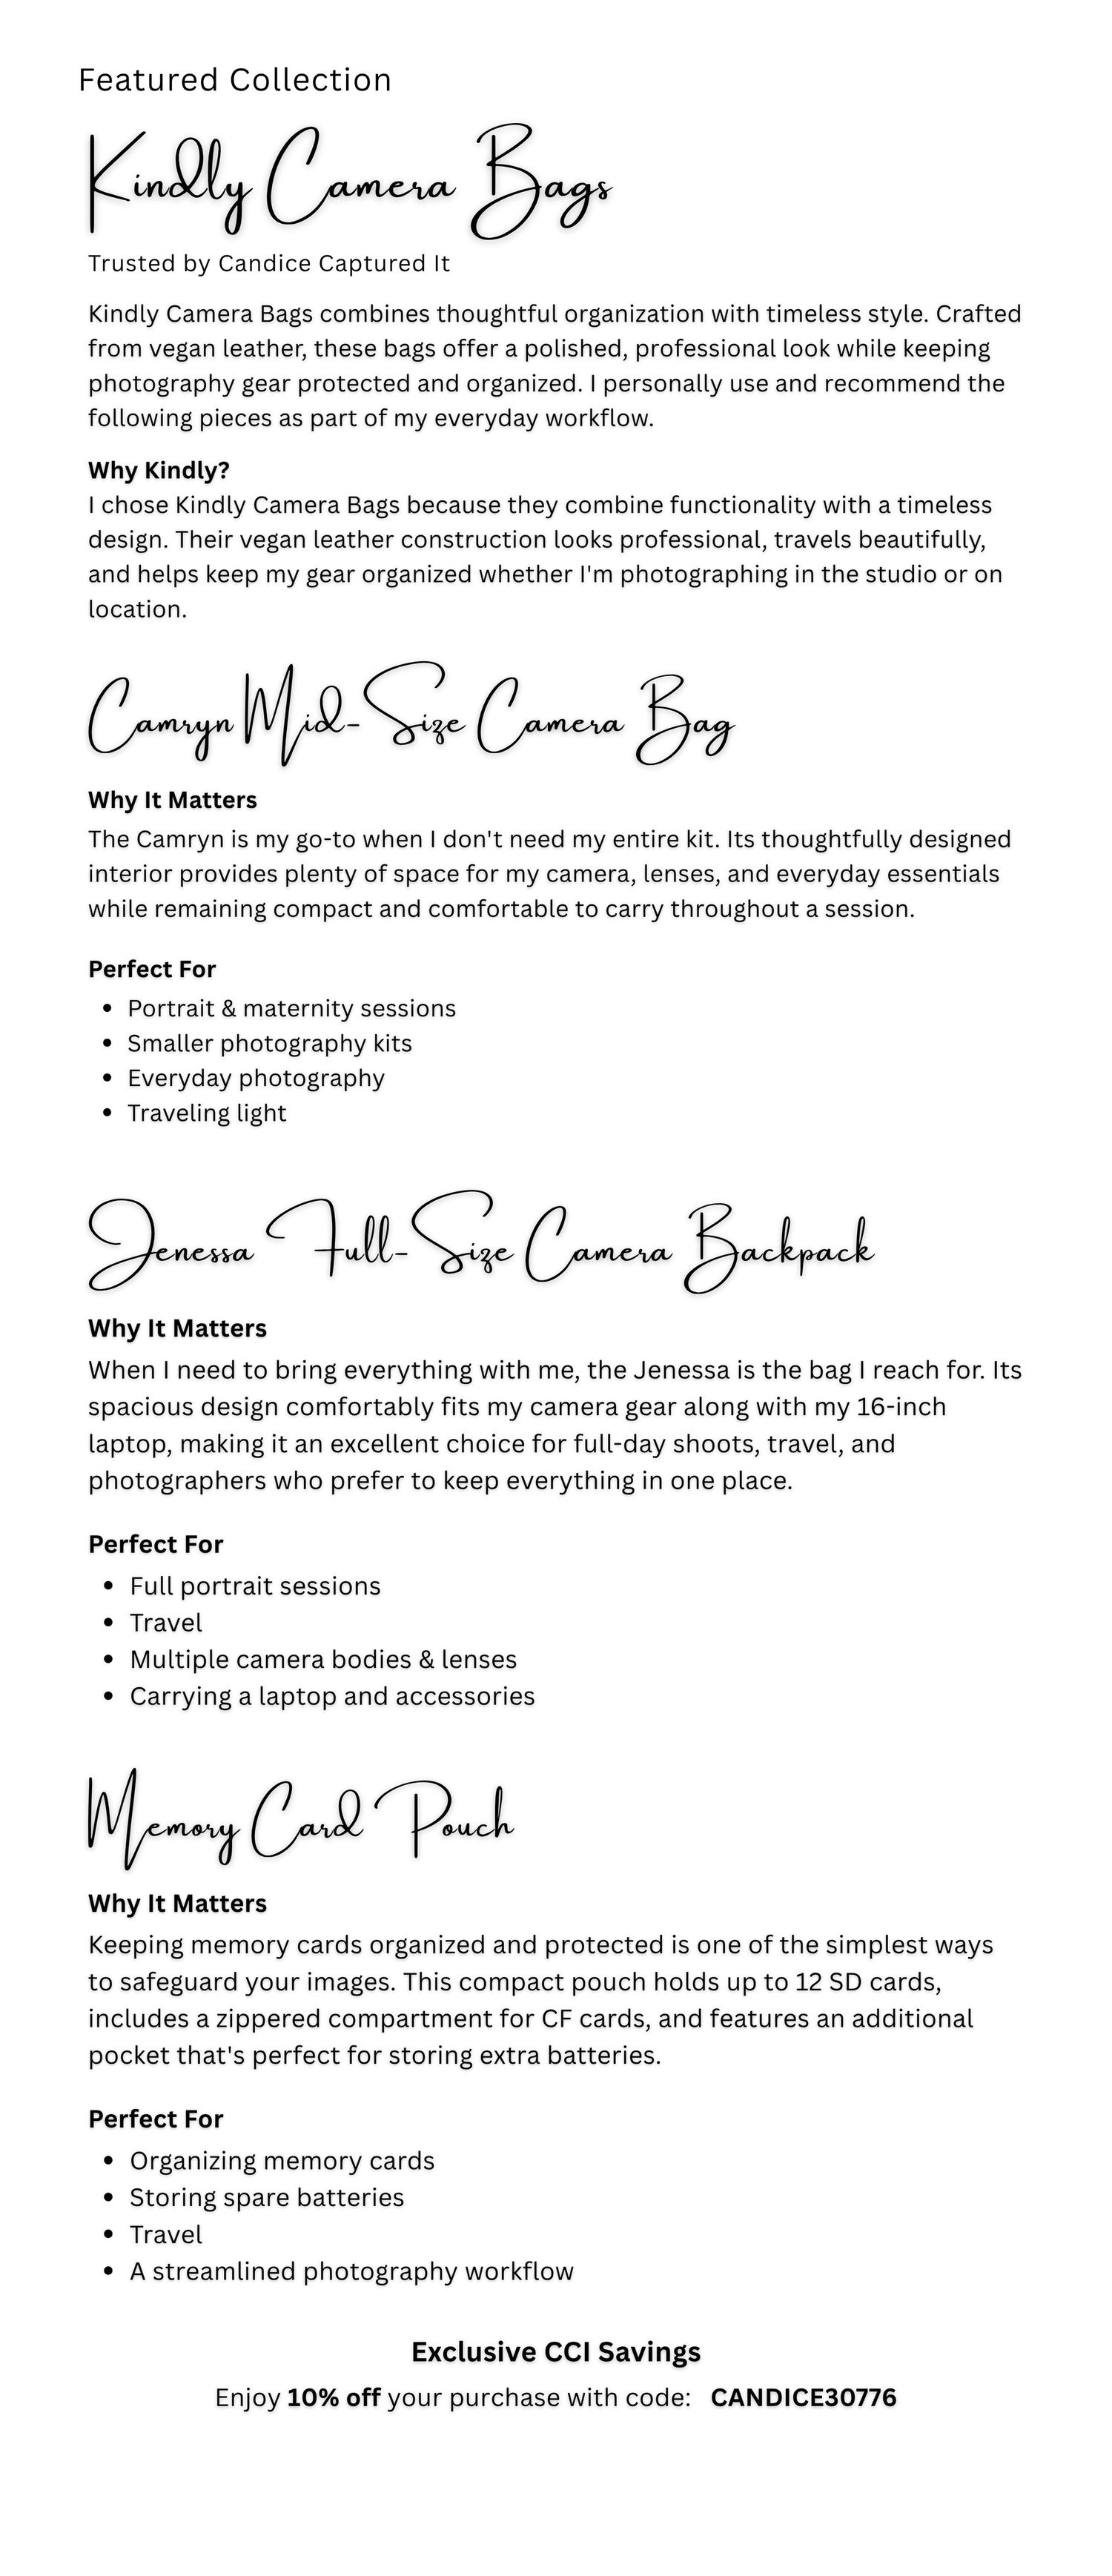 Featured Collection
Kindly Camera Bags
Trusted by Candice Captured It
Kindly Camera Bags combines thoughtful organization with timeless style. Crafted
from vegan leather, these bags offer a polished, professional look while keeping
photography gear protected and organized. I personally use and recommend the
following pieces as part of my everyday workflow.
Why Kindly?
I chose Kindly Camera Bags because they combine functionality with a timeless
design. Their vegan leather construction looks professional, travels beautifully,
and helps keep my gear organized whether I'm photographing in the studio or on
location.
Camryn Mid-Size Camera Bag
Why It Matters
The Camryn is my go-to when I don't need my entire kit. Its thoughtfully designed
interior provides plenty of space for my camera, lenses, and everyday essentials
while remaining compact and comfortable to carry throughout a session.
Perfect For
• Portrait & maternity sessions
• Smaller photography kits
• Everyday photography
• Traveling light
Jenessa Full-Size Camera Backpack
Why It Matters
When I need to bring everything with me, the Jenessa is the bag I reach for. Its
spacious design comfortably fits my camera gear along with my 16-inch
laptop, making it an excellent choice for full-day shoots, travel, and
photographers who prefer to keep everything in one place.
Perfect For
• Full portrait sessions
• Travel
• Multiple camera bodies & lenses
• Carrying a laptop and accessories
Memory Card Pouch
Why It Matters
Keeping memory cards organized and protected is one of the simplest ways
to safeguard your images. This compact pouch holds up to 12 SD cards,
includes a zippered compartment for CF cards, and features an additional
pocket that's perfect for storing extra batteries.
Perfect For
• Organizing memory cards
• Storing spare batteries
• Travel
• A streamlined photography workflow
Exclusive CCI Savings
Enjoy 10% off your purchase with code: CANDICE30776